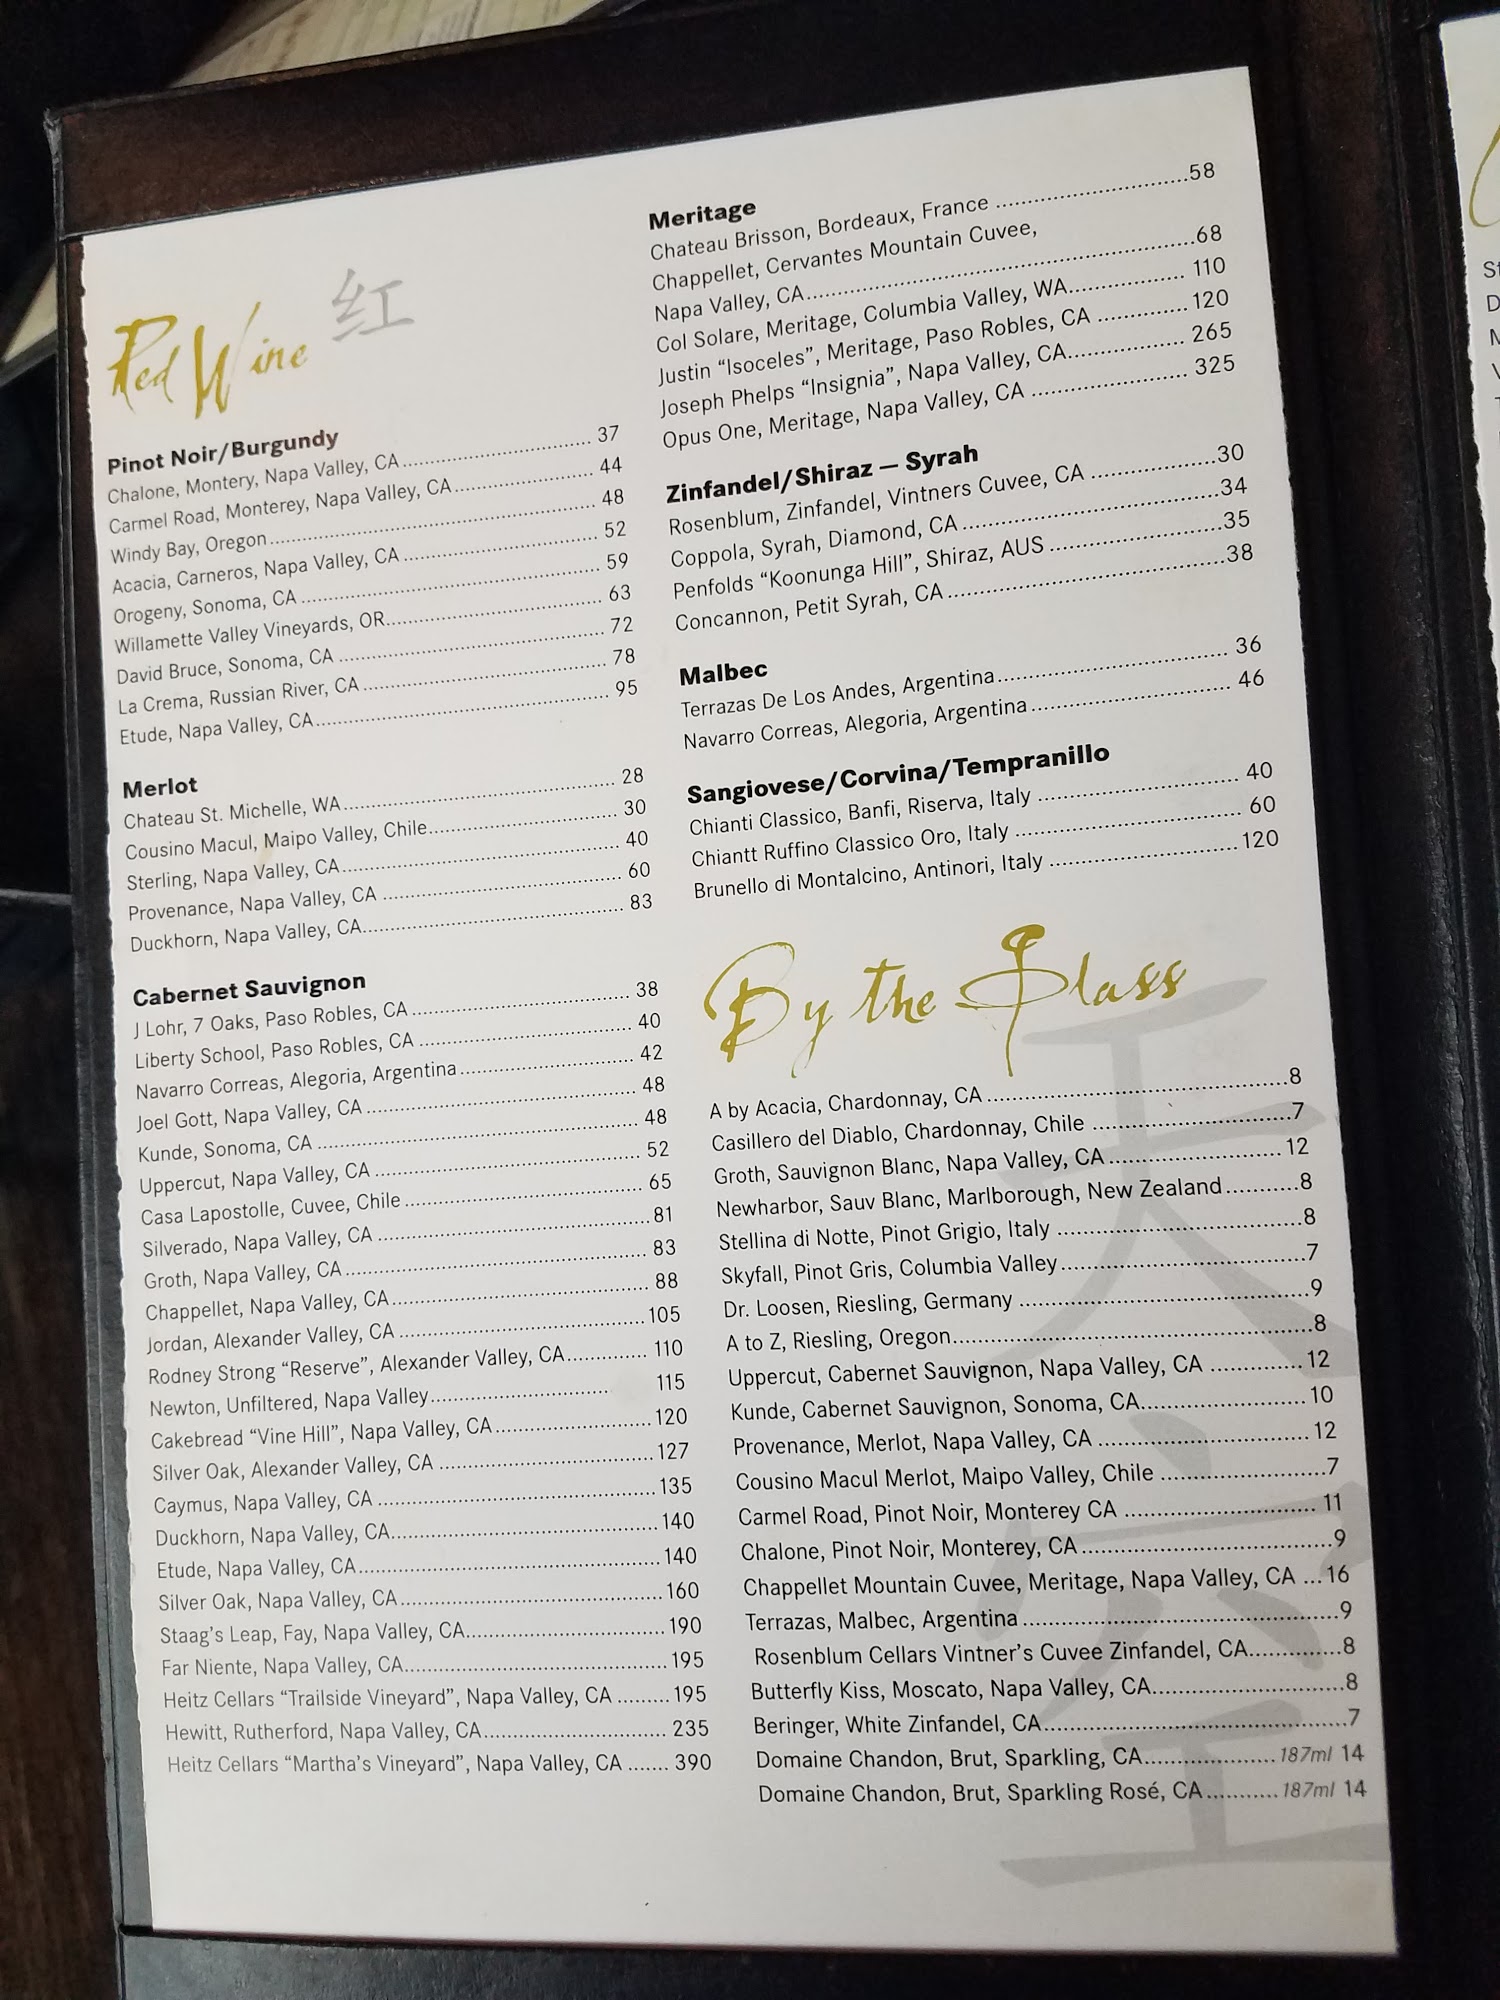 Red Wine 紅
Pinot Noir/Burgundy
Chalone, Montery, Napa Valley, CA ........ 37
Carmel Road, Monterey, Napa Valley, CA ........ 44
Windy Bay, Oregon ........ 48
Acacia, Carneros, Napa Valley, CA ........ 52
Orogeny, Sonoma, CA ........ 59
Willamette Valley Vineyards, OR ........ 63
David Bruce, Sonoma, CA ........ 72
La Crema, Russian River, CA ........ 78
Etude, Napa Valley, CA ........ 95
Merlot
Chateau St. Michelle, WA ........ 28
Cousino Macul, Maipo Valley, Chile ........ 30
Sterling, Napa Valley, CA ........ 40
Provenance, Napa Valley, CA ........ 60
Duckhorn, Napa Valley, CA ........ 83
Cabernet Sauvignon
J Lohr, 7 Oaks, Paso Robles, CA ........ 38
Liberty School, Paso Robles, CA ........ 40
Navarro Correas, Alegoria, Argentina ........ 42
Joel Gott, Napa Valley, CA ........ 48
Kunde, Sonoma, CA ........ 48
Uppercut, Napa Valley, CA ........ 52
Casa Lapostolle, Cuvee, Chile ........ 65
Silverado, Napa Valley, CA ........ 81
Groth, Napa Valley, CA ........ 83
Chappellet, Napa Valley, CA ........ 88
Jordan, Alexander Valley, CA ........ 105
Rodney Strong “Reserve”, Alexander Valley, CA ........ 110
Newton, Unfiltered, Napa Valley ........ 115
Cakebread “Vine Hill”, Napa Valley, CA ........ 120
Silver Oak, Alexander Valley, CA ........ 127
Caymus, Napa Valley, CA ........ 135
Duckhorn, Napa Valley, CA ........ 140
Etude, Napa Valley, CA ........ 140
Silver Oak, Napa Valley, CA ........ 160
Staag’s Leap, Fay, Napa Valley, CA ........ 190
Far Niente, Napa Valley, CA ........ 195
Heitz Cellars “Trailside Vineyard”, Napa Valley, CA ........ 195
Hewitt, Rutherford, Napa Valley, CA ........ 235
Heitz Cellars “Martha’s Vineyard”, Napa Valley, CA ....... 390
Meritage
Chateau Brisson, Bordeaux, France ........ 58
Chappellet, Cervantes Mountain Cuvee,
Napa Valley, CA ........ 68
Col Solare, Meritage, Columbia Valley, WA ........ 110
Justin “Isoceles”, Meritage, Paso Robles, CA ........ 120
Joseph Phelps “Insignia”, Napa Valley, CA ........ 265
Opus One, Meritage, Napa Valley, CA ........ 325
Zinfandel/Shiraz – Syrah
Rosenblum, Zinfandel, Vintners Cuvee, CA ........ 30
Coppola, Syrah, Diamond, CA ........ 34
Penfolds “Koonunga Hill”, Shiraz, AUS ........ 35
Concannon, Petit Syrah, CA ........ 38
Malbec
Terrazas De Los Andes, Argentina ........ 36
Navarro Correas, Alegoria, Argentina ........ 46
Sangiovese/Corvina/Tempranillo
Chianti Classico, Banfi, Riserva, Italy ........ 40
Chiantt Ruffino Classico Oro, Italy ........ 60
Brunello di Montalcino, Antinori, Italy ........ 120
By the Glass
A by Acacia, Chardonnay, CA ........ 8
Casillero del Diablo, Chardonnay, Chile ........ 7
Groth, Sauvignon Blanc, Napa Valley, CA ........ 12
Newharbor, Sauv Blanc, Marlborough, New Zealand ........ 8
Stellina di Notte, Pinot Grigio, Italy ........ 8
Skyfall, Pinot Gris, Columbia Valley ........ 7
Dr. Loosen, Riesling, Germany ........ 9
A to Z, Riesling, Oregon ........ 8
Uppercut, Cabernet Sauvignon, Napa Valley, CA ........ 12
Kunde, Cabernet Sauvignon, Sonoma, CA ........ 10
Provenance, Merlot, Napa Valley, CA ........ 12
Cousino Macul Merlot, Maipo Valley, Chile ........ 7
Carmel Road, Pinot Noir, Monterey CA ........ 11
Chalone, Pinot Noir, Monterey, CA ........ 9
Chappellet Mountain Cuvee, Meritage, Napa Valley, CA ... 16
Terrazas, Malbec, Argentina ........ 9
Rosenblum Cellars Vintner’s Cuvee Zinfandel, CA ........ 8
Butterfly Kiss, Moscato, Napa Valley, CA ........ 8
Beringer, White Zinfandel, CA ........ 7
Domaine Chandon, Brut, Sparkling, CA ........ 187ml 14
Domaine Chandon, Brut, Sparkling Rosé, CA ........ 187ml 14
天空